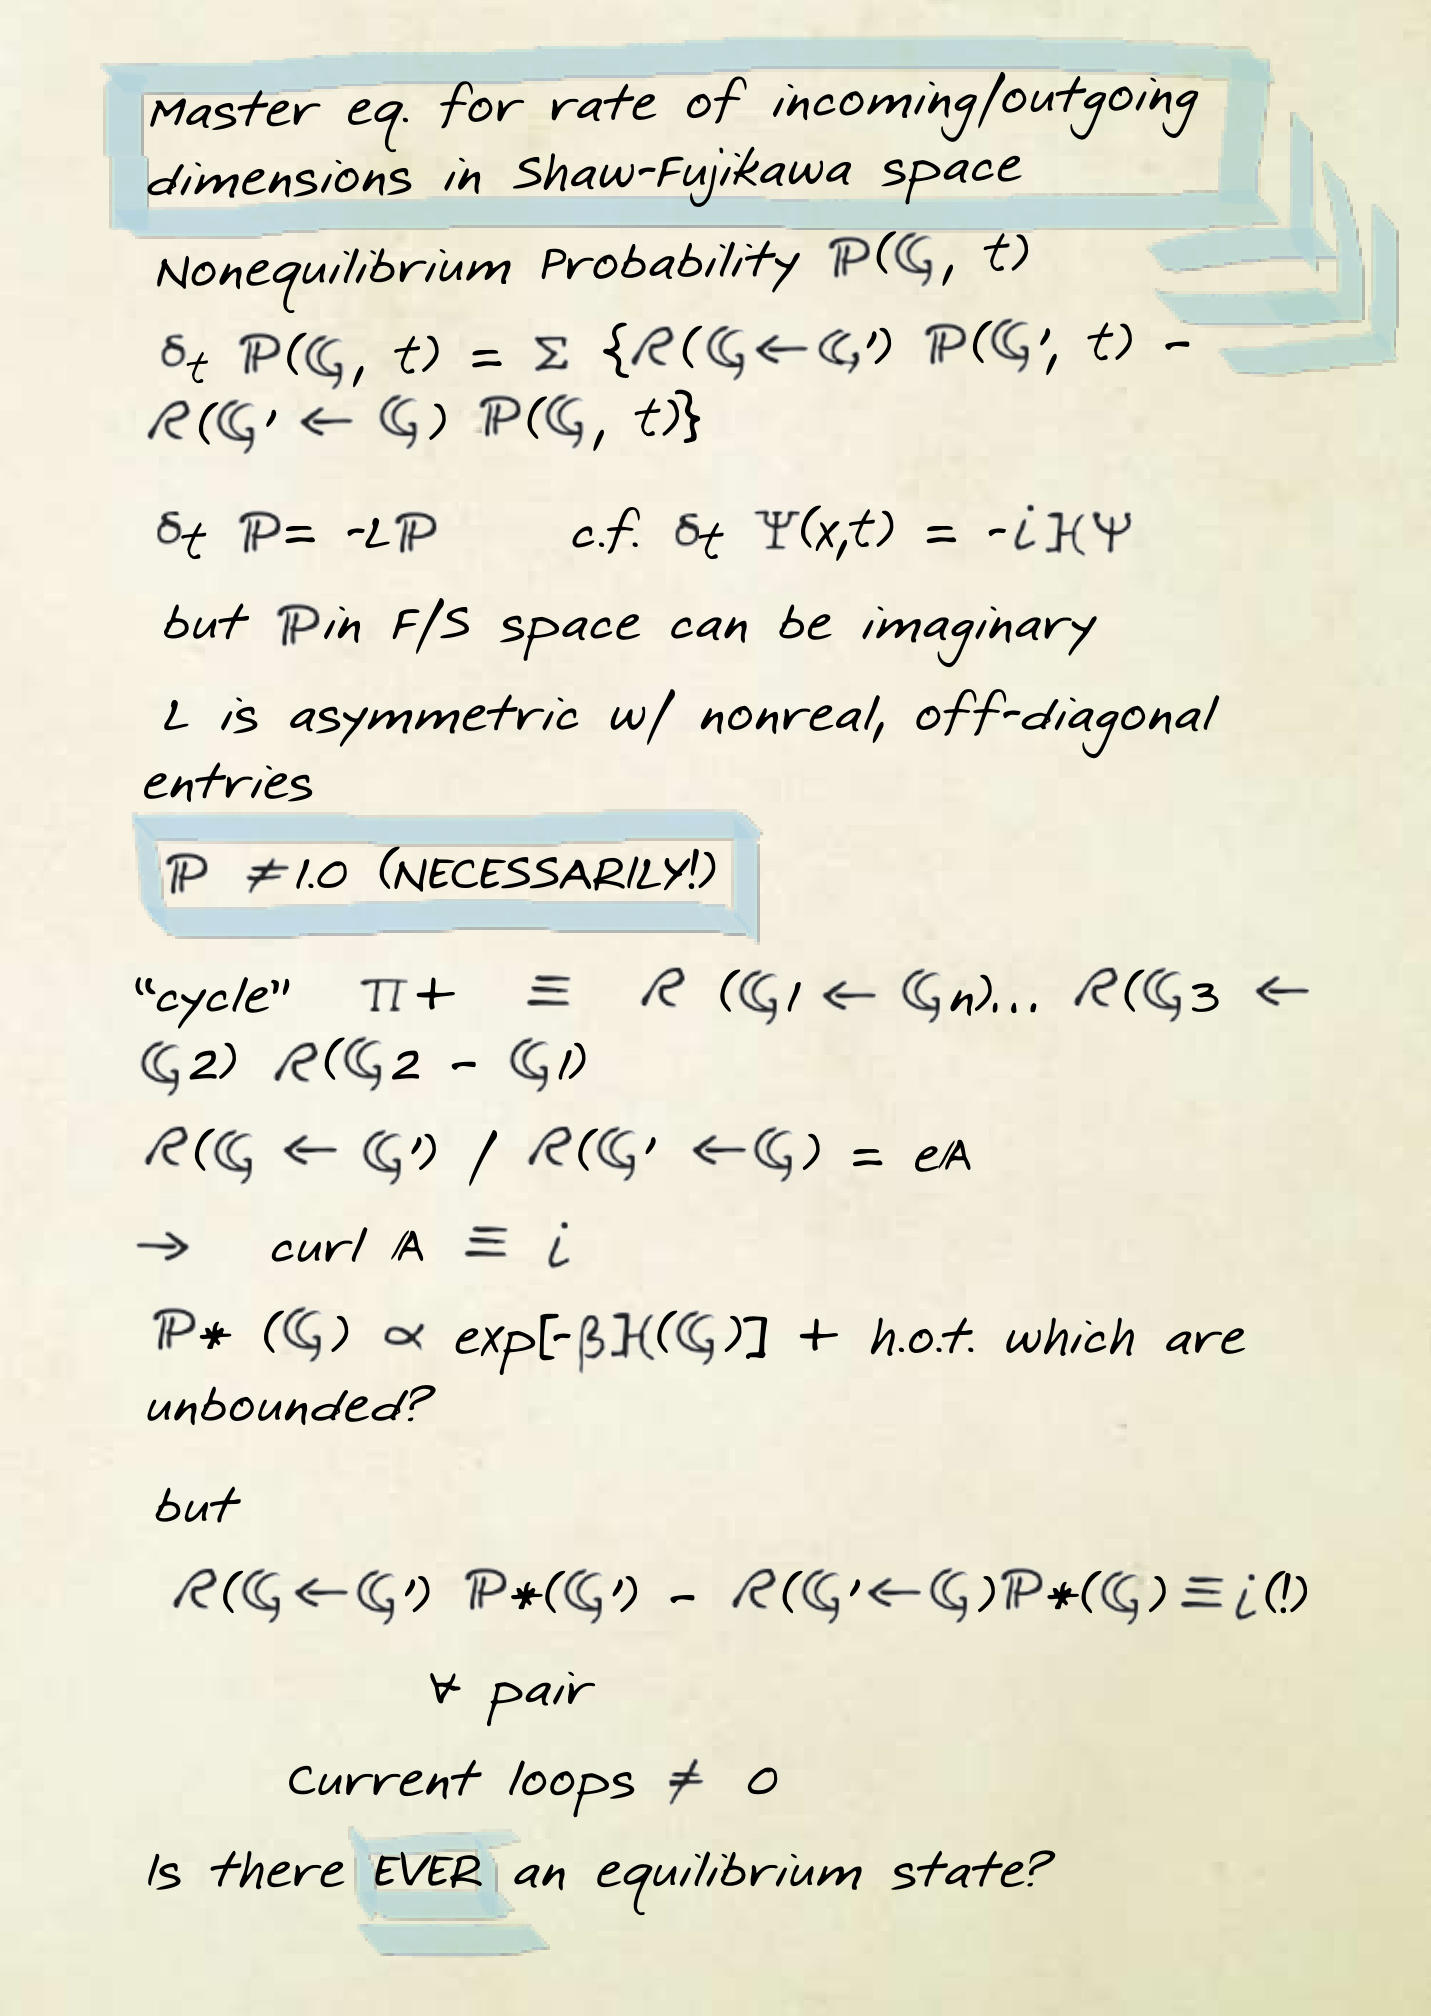 Master eq. for rate of incoming/outgoing
dimensions in Shaw-Fujikawa space
Nonequilibrium Probability ℙ(𝔾, t)
δt ℙ(𝔾, t) = Σ {R(𝔾←𝔾') ℙ(𝔾', t) -
R(𝔾' ← 𝔾) ℙ(𝔾, t)}
δt ℙ= -Lℙ c.f. δt Ψ(x,t) = -iℋΨ
but ℙin F/S space can be imaginary
L is asymmetric w/ nonreal, off-diagonal
entries
ℙ ≠1.0 (NECESSARILY!)
“cycle” π+ ≡ R (𝔾1 ← 𝔾n)... R(𝔾3 ←
𝔾2) R(𝔾2 - 𝔾1)
R(𝔾 ← 𝔾') / R(𝔾' ←𝔾) = e𝔸
→ curl 𝔸 ≡ i
ℙ* (𝔾) ∝ exp[-βℋ(𝔾)] + h.o.t. which are
unbounded?
but
R(𝔾←𝔾') ℙ*(𝔾') - R(𝔾'←𝔾)ℙ*(𝔾)≡i(!)
∀ pair
Current loops ≠ 0
Is there EVER an equilibrium state?